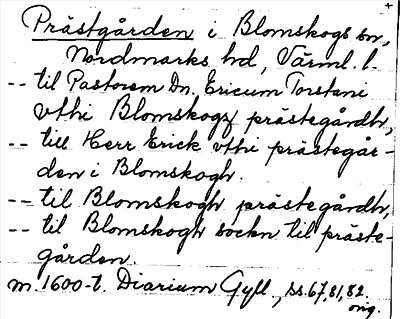 Prästgården i Blomskogs sn,
Nordmarks hd, Värml. l.
-- til Pastorem Dn. Ericum Torstani
vthi Blomskogz prästegårdh,
-- till Herr Erick vthi prästegår-
den i Blomskogh.
-- til Blomskogh prästegårdh,
-- til Blomskogh sockn til präste-
gården.
m. 1600-t. Diarium Gyll., ss. 67, 81, 82.
orig.